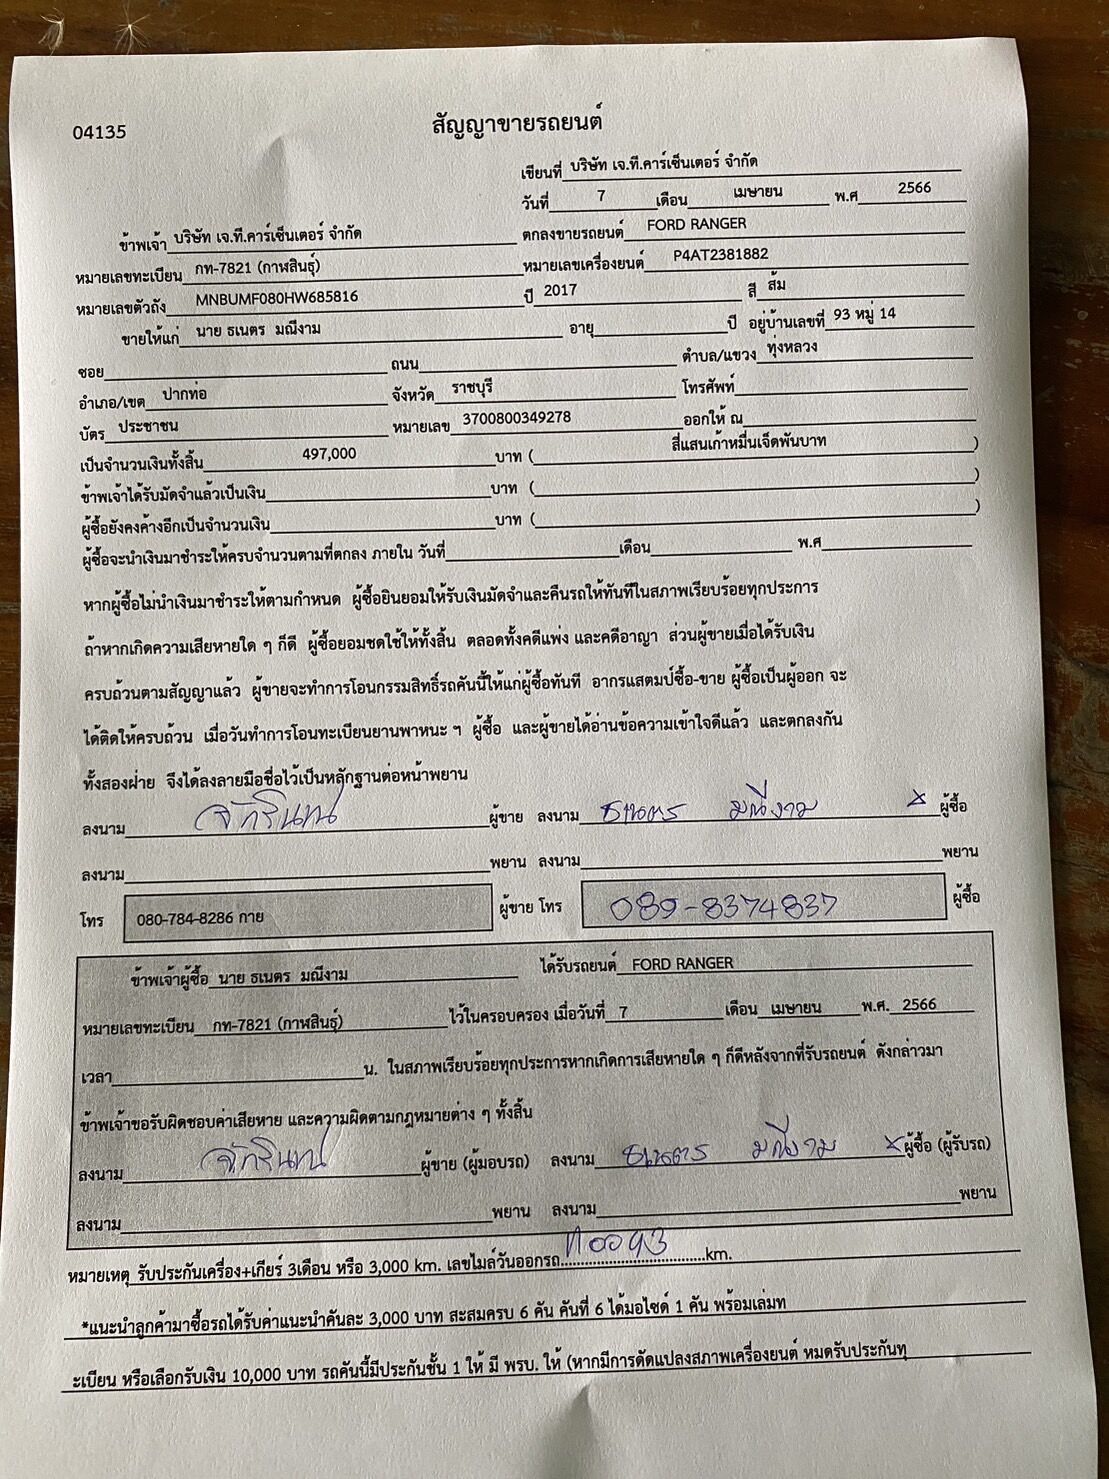 04135
สัญญาขายรถยนต์
เขียนที่ บริษัท เจ.ที.คาร์เซ็นเตอร์ จำกัด
วันที่ 7 เดือน เมษายน พ.ศ 2566
ข้าพเจ้า บริษัท เจ.ที.คาร์เซ็นเตอร์ จำกัด ตกลงขายรถยนต์ FORD RANGER
หมายเลขทะเบียน กท-7821 (กาฬสินธุ์) หมายเลขเครื่องยนต์ P4AT2381882
หมายเลขตัวถัง MNBUMF080HW685816 ปี 2017 สี ส้ม
ขายให้แก่ นาย ธเนตร มณีงาม อายุ ปี อยู่บ้านเลขที่ 93 หมู่ 14
ซอย ถนน ตำบล/แขวง ทุ่งหลวง
อำเภอ/เขต ปากท่อ จังหวัด ราชบุรี โทรศัพท์
บัตร ประชาชน หมายเลข 3700800349278 ออกให้ ณ
เป็นจำนวนเงินทั้งสิ้น 497,000 บาท ( สี่แสนเก้าหมื่นเจ็ดพันบาท )
ข้าพเจ้าได้รับมัดจำแล้วเป็นเงิน บาท ( )
ผู้ซื้อยังคงค้างอีกเป็นจำนวนเงิน บาท ( )
ผู้ซื้อจะนำเงินมาชำระให้ครบจำนวนตามที่ตกลง ภายใน วันที่ เดือน พ.ศ
หากผู้ซื้อไม่นำเงินมาชำระให้ตามกำหนด ผู้ซื้อยินยอมให้รับเงินมัดจำและคืนรถให้ทันทีในสภาพเรียบร้อยทุกประการ
ถ้าหากเกิดความเสียหายใด ๆ ก็ดี ผู้ซื้อยอมชดใช้ให้ทั้งสิ้น ตลอดทั้งคดีแพ่ง และคดีอาญา ส่วนผู้ขายเมื่อได้รับเงิน
ครบถ้วนตามสัญญาแล้ว ผู้ขายจะทำการโอนกรรมสิทธิ์รถคันนี้ให้แก่ผู้ซื้อทันที อากรแสตมป์ซื้อ-ขาย ผู้ซื้อเป็นผู้ออก จะ
ได้ติดให้ครบถ้วน เมื่อวันทำการโอนทะเบียนยานพาหนะ ฯ ผู้ซื้อ และผู้ขายได้อ่านข้อความเข้าใจดีแล้ว และตกลงกัน
ทั้งสองฝ่าย จึงได้ลงลายมือชื่อไว้เป็นหลักฐานต่อหน้าพยาน
ลงนาม จักรินทน์ ผู้ขาย ลงนาม ธเนตร มณีงาม x ผู้ซื้อ
ลงนาม พยาน ลงนาม พยาน
โทร 080-784-8286 กาย ผู้ขาย โทร 089-8374837 ผู้ซื้อ
ข้าพเจ้าผู้ซื้อ นาย ธเนตร มณีงาม ได้รับรถยนต์ FORD RANGER
หมายเลขทะเบียน กท-7821 (กาฬสินธุ์) ไว้ในครอบครอง เมื่อวันที่ 7 เดือน เมษายน พ.ศ. 2566
เวลา น. ในสภาพเรียบร้อยทุกประการหากเกิดการเสียหายใด ๆ ก็ดีหลังจากที่รับรถยนต์ ดังกล่าวมา
ข้าพเจ้าขอรับผิดชอบค่าเสียหาย และความผิดตามกฎหมายต่าง ๆ ทั้งสิ้น
ลงนาม จักรินทน์ ผู้ขาย (ผู้มอบรถ) ลงนาม ธเนตร มณีงาม x ผู้ซื้อ (ผู้รับรถ)
ลงนาม พยาน ลงนาม พยาน
หมายเหตุ รับประกันเครื่อง+เกียร์ 3เดือน หรือ 3,000 km. เลขไมล์วันออกรถ km.
*แนะนำลูกค้ามาซื้อรถได้รับค่าแนะนำคันละ 3,000 บาท สะสมครบ 6 คัน คันที่ 6 ได้มอไซด์ 1 คัน พร้อมเล่มท
ะเบียน หรือเลือกรับเงิน 10,000 บาท รถคันนี้มีประกันชั้น 1 ให้ มี พรบ. ให้ (หากมีการดัดแปลงสภาพเครื่องยนต์ หมดรับประกันทุ